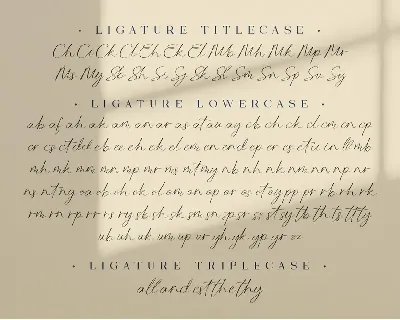 • LIGATURE TITLECASE •
Ch Ci Ck Cl Eh Ek El Mb Mh Mk Mp Mr
Ms My Sb Sh Si Sj Sk Sl Sm Sn Sp Sv Sy
• LIGATURE LOWERCASE •
ab af ah ak am an ar as at au ay cb ch ck cl cm cn cp
cr cs ct eb ec ch ck el em en end ep er es et mb
mh mk mm mn mp mr ms mt my nb nh nk nm nn np nr
ns nt ny oa ob oh ok ol om on op or os ot oy pp pr rb rh rk
rm rn rp rr rs ry sb sh sk sm sn sp sr ss st sy tb th ts tt ty
ub uh uk um up ur yh yk yp yr zz
• LIGATURE TRIPLECASE •
all and est the thy